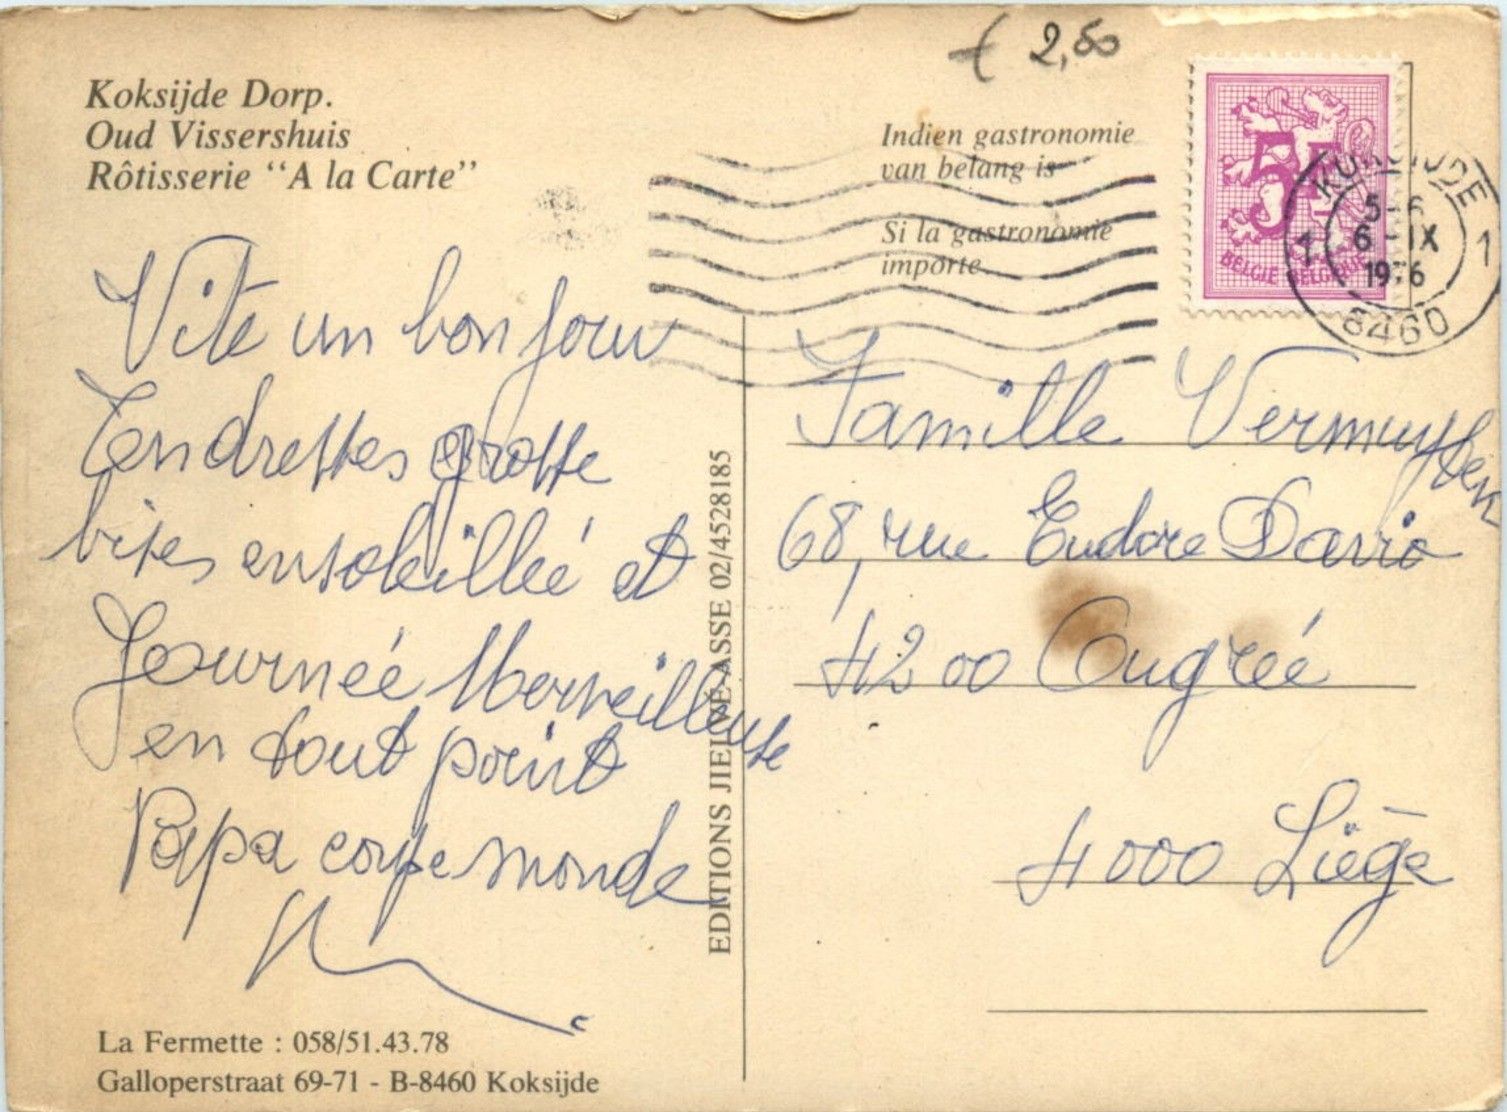 Koksijde Dorp.
Oud Vissershuis
Rôtisserie "A la Carte"
€ 2,50
Indien gastronomie
van belang is
Si la gastronomie
importe.
5F
BELGIË BELGIQUE
KOKSIJDE
5-6
6-IX
1976
1 1
8460
Vite un bonjour
Tendresses grosse
bises ensoleillée et
Journée Merveilleuse
en tout point
Papa monde
EDITIONS JIELVE-ASSE 02/4528185
Famille
68, rue Eudore
4200 Ougrée
4000 Liège
La Fermette : 058/51.43.78
Galloperstraat 69-71 - B-8460 Koksijde